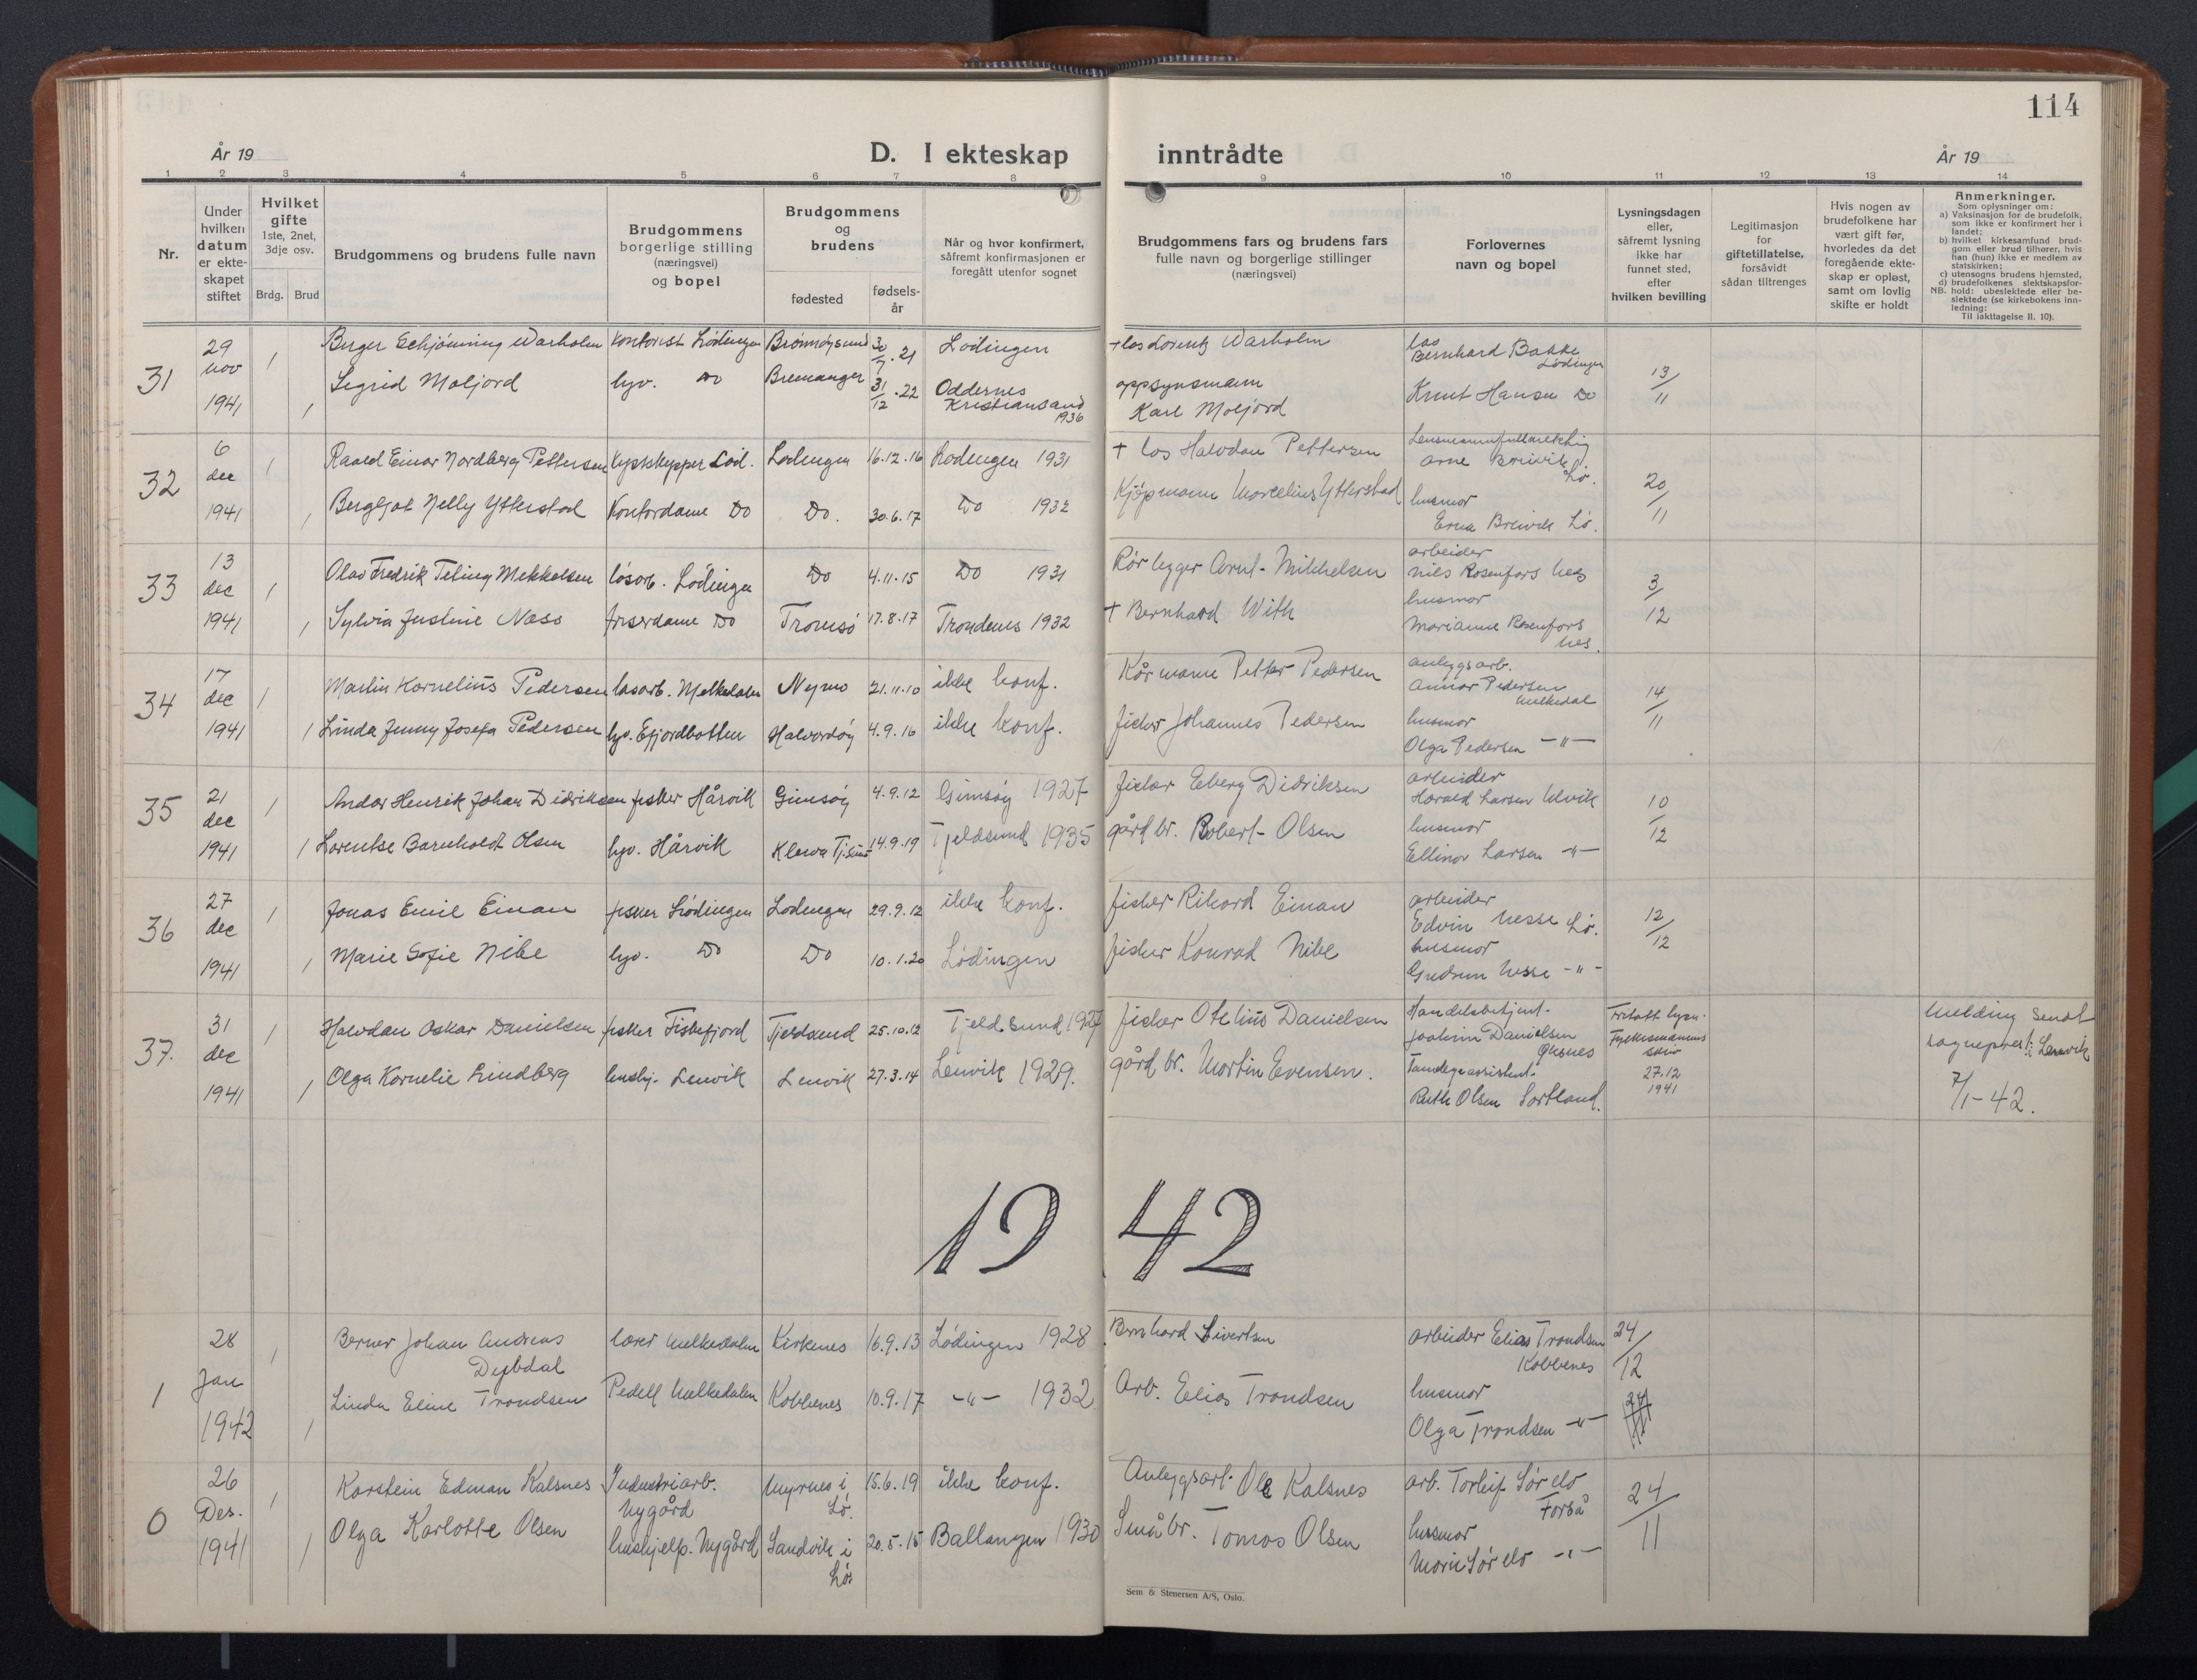 114
År 19
D. I ekteskap inntrådte
År 19
1 2 3 4 5 6 7 8 9 10 11 12 13 14
Nr.
Under hvilken datum er ekteskapet stiftet
Hvilket gifte
1ste, 2net, 3dje osv.
Brdg. Brud
Brudgommens og brudens fulle navn
Brudgommens borgerlige stilling (næringsvei) og bopel
Brudgommens og brudens
fødested
fødselsår
Når og hvor konfirmert, såfremt konfirmasjonen er foregått utenfor sognet
Brudgommens fars og brudens fars fulle navn og borgerlige stillinger (næringsvei)
Forlovernes navn og bopel
Lysningsdagen eller, såfremt lysning ikke har funnet sted, efter hvilken bevilling
Legitimasjon for giftetillatelse, forsåvidt sådan tiltrenges
Hvis nogen av brudefolkene har vært gift før, hvorledes da det foregående ekteskap er opløst, samt om lovlig skifte er holdt
Anmerkninger.
Som oplysninger om:
a) Vaksinasjon for de brudefolk, som ikke er konfirmert her i landet;
b) hvilket kirkesamfund brudgom eller brud tilhører, hvis han (hun) ikke er medlem av statskirken;
c) utensogns brudens hjemsted,
d) brudefolkenes slektskapsforhold: ubeslektede eller beslektede (se kirkebokens innledning:
NB.
Til iakttagelse II. 10).
31 29 nov 1941 1 Birger Schjønning Warholm Kontorist Lødingen Brønnøysund 30/7.21 Lødingen + los Lorentz Warholm los Bernhard Bakke Lødingen 13/11
1 Sigrid Moljord hjv. Do Bremanger 31/12.22 Oddernes Kristiansand 1936 oppsynsmann Karl Moljord Knut Hansen Do
32 6 dec 1941 1 Einar Nordberg Pettersen Kystskipper Lød. Lødingen 16.12.16 Lødingen 1931 + los Halvdan Pettersen Arne Breivik Lø. 20/11
1 Bergljot Nelly Ytterstad Kontordame Do Do. 30.6.17 Do 1932 Kjøpmann Marcelius Ytterstad husmor Erna Breivik Lø.
33 13 dec 1941 1 Olav Fredrik Teting Mikkelsen løsarb. Lødingen Do 4.11.15 Do 1931 Rørlegger Arnt Mikkelsen arbeider Nils Rosenfors Nes 3/12
1 Sylvia Justine Næss friserdame Do Tromsø 17.8.17 Trondenes 1932 + Bernhard With husmor Marianne Rosenfors Nes.
34 17 dec 1941 1 Martin Kornelius Pedersen løsarb. Melkedalen Nymo 21.11.10 ikke konf. Kårmann Petter Pedersen anleggsarb. Annar Pedersen Melkedal 14/11
1 Linda Jenny Josefa Pedersen hjv. Efjordbotten Halvardøy 4.9.16 ikke konf. fisker Johannes Pedersen husmor Olga Pedersen -"-
35 21 dec 1941 1 Andor Henrik Johan Didriksen fisker Hårvik Gimsøy 4.9.12 Gimsøy 1927 fisker Edberg Didriksen arbeider Harald Larsen Ulvik 10/12
1 Lorentse Barnholdt Olsen hjv. Hårvik Kleiva Tj.sund 14.9.19 Tjeldsund 1935 gårdbr. Robert Olsen husmor Ellinor Larsen -"-
36 27 dec 1941 1 Jonas Emil Einan fisker Lødingen Lødingen 29.9.12 ikke konf. fisker Rikard Einan arbeider Edvin Nesse Lø. 12/12
1 Marie Sofie Nibe hjv. Do Do 10.1.20 Lødingen fisker Konrad Nibe husmor Gudrun Nesse -"-
37. 31 dec 1941 1 Halvdan Oskar Danielsen fisker Fiskefjord Tjeldsund 25.10.12 Tjeldsund 1927 fisker Otelius Danielsen Handelsbetjent. Joakim Danielsen Øksnes Fritatt lysn. Fylkesmannens skriv 27.12 1941 Melding sendt sogneprest i Lenvik 7/1-42.
1 Olga Kornelie Lindberg hushj. Lenvik Lenvik 27.3.14 Lenvik 1929. gårdbr. Martin Evensen. Tannlegeassistent. Ruth Olsen Sortland.
1942
1 28 Jan 1942 1 Berner Johan Andreas Dybdal lærer Melkedalen Kirkenes 16.9.13 Lødingen 1928 Bernhard Sivertsen arbeider Elias Trondsen Kobbenes 24/12
1 Linda Eline Trondsen Pedell Melkedalen Kobbenes 10.9.17 -"- 1932 Arb. Elias Trondsen husmor Olga Trondsen -"-
0 26 Des. 1941 1 Karstein Edman Kalsnes Industriarb. Nygård Myrnes i Lø. 15.6.19 ikke konf. Anleggsarb. Ole Kalsnes arb. Torleif Sørdo Forså 24/11
1 Olga Karlotte Olsen hushjelp. Nygård Sandvik i Lø. 20.5.15 Ballangen 1930 Småbr. Tomas Olsen husmor Marie Sørdo -"-
Sem & Stenersen A/S, Oslo.